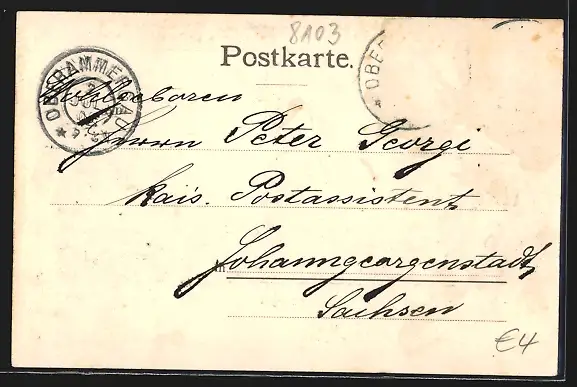 8A03
Postkarte.
OBERAMMERGAU
OBE
Wohlgeboren
Herrn Peter Georgi
kais. Postassistent
in Johanngeorgenstadt
Sachsen
€4